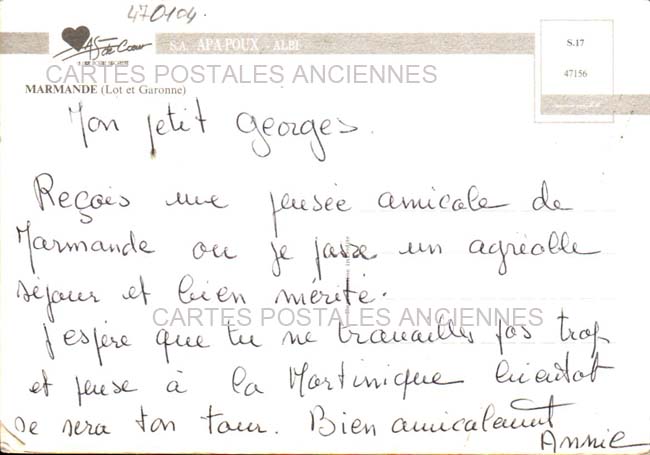 470104
As de Coeur
S.A. APA-POUX - ALBI
S.17
47156
CARTES POSTALES ANCIENNES
MARMANDE (Lot et Garonne)
Mon petit Georges.
Reçois une pensée amicale de
Marmande ou je passe un agréable
séjour et bien mérité.
J'espère que tu ne travailles pas trop
CARTES POSTALES ANCIENNES
et pense à la Martinique bientot
se sera ton tour. Bien amicalement
Annie